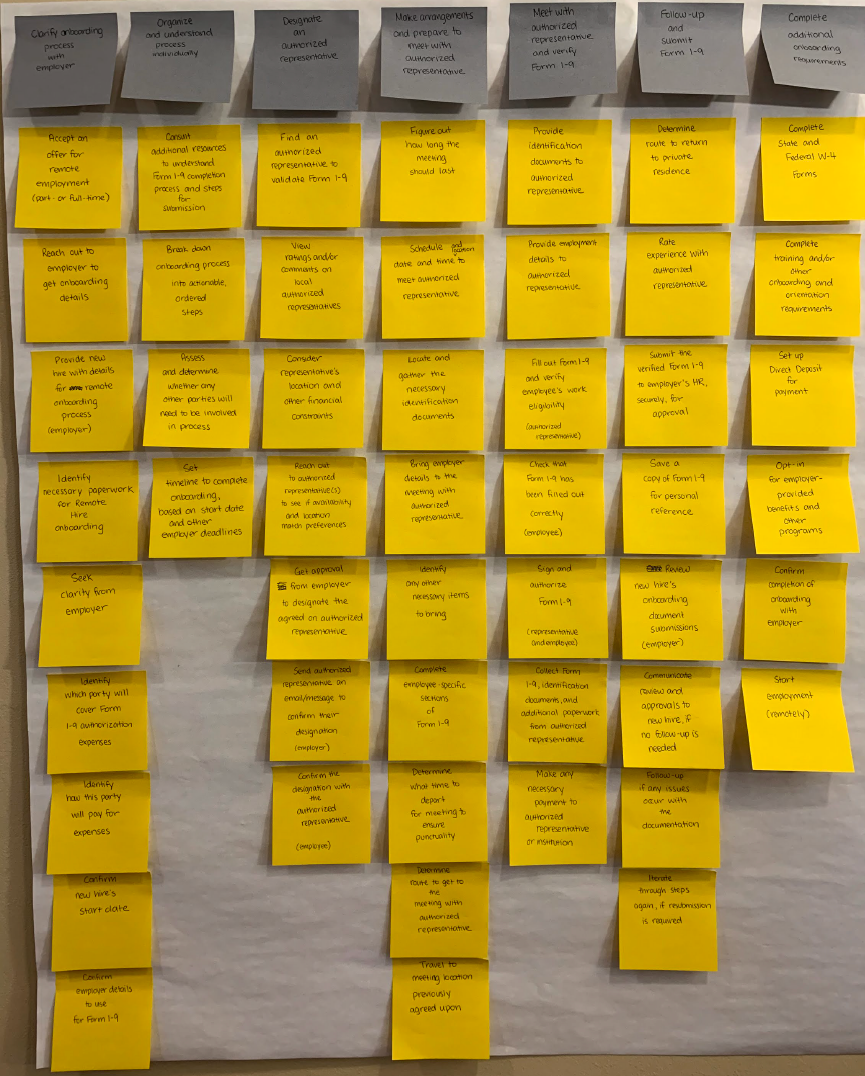 Clarify onboarding
process
with
employer
Organize
and understand
process
individually
Designate
an
authorized
representative
Make arrangements
and prepare to
meet with
authorized
representative
Meet with
authorized
representative
and verify
Form I-9
Follow-up
and
Submit
Form I-9
Complete
additional
onboarding
requirements
Accept an
offer for
remote
employment
(part- or full-time)
Reach out to
employer to
get onboarding
details
Provide new
hire with details
for remote
onboarding
process
(employer)
Identify
necessary paperwork
for Remote
Hire
onboarding
Seek
clarity from
employer
Identify
which party will
cover Form
I-9 authorization
expenses
Identify
how this party
will pay for
expenses
Confirm
new hire's
start date
Confirm
employer details
to use
for Form I-9
Consult
additional resources
to understand
Form I-9 completion
process and steps
for
submission
Break down
onboarding process
into actionable,
ordered
steps
Assess
and determine
whether any
other parties will
need to be involved
in process
Set
timeline to complete
onboarding,
based on start date
and other
employer deadlines
Find an
authorized
representative to
validate Form I-9
View
ratings and/or
comments on
local
authorized
representatives
Consider
representative's
location and
other financial
constraints
Reach out
to authorized
representative(s)
to see if availability
and location
match preferences
Get approval
from employer
to designate the
agreed on authorized
representative
Send authorized
representative an
email/message to
confirm their
designation
(employer)
Confirm the
designation with
the
authorized
representative
(employee)
Figure out
how long the
meeting
should last
Schedule and location
date and time to
meet authorized
representative
Locate and
gather the
necessary
identification
documents
Bring employer
details to the
meeting with
authorized
representative
Identify
any other
necessary items
to bring
Complete
employee-specific
sections
of
Form I-9
Determine
what time to
depart
for meeting to
ensure
punctuality
Determine
route to get to
the
meeting with
authorized
representative
Travel to
meeting location
previously
agreed upon
Provide
identification
documents to
authorized
representative
Provide employment
details to
authorized
representative
Fill out Form I-9
and verify
employee's work
eligibility
(authorized
representative)
Check that
Form I-9 has
been filled out
correctly
(employee)
Sign and
authorize
Form I-9
(representative
and employee)
Collect Form
I-9, identification
documents, and
additional paperwork
from authorized
representative
Make any
necessary
payment to
authorized
representative
or institution
Determine
route to return
to private
residence
Rate
experience with
authorized
representative
Submit the
verified Form I-9
to employer's HR,
securely, for
approval
Save a
copy of Form I-9
for personal
reference
Review
new hire's
onboarding
document
submissions
(employer)
Communicate
review and
approvals to
new hire, if
no follow-up is
needed
Follow-up
if any issues
occur with
the
documentation
Iterate
through steps
again, if resubmission
is required
Complete
State and
Federal W-4
Forms
Complete
training and/or
other
onboarding and
orientation
requirements
Set up
Direct Deposit
for
payment
Opt-in
for employer-
provided
benefits and
other
programs
Confirm
completion of
onboarding
with
employer
Start
employment
(remotely)